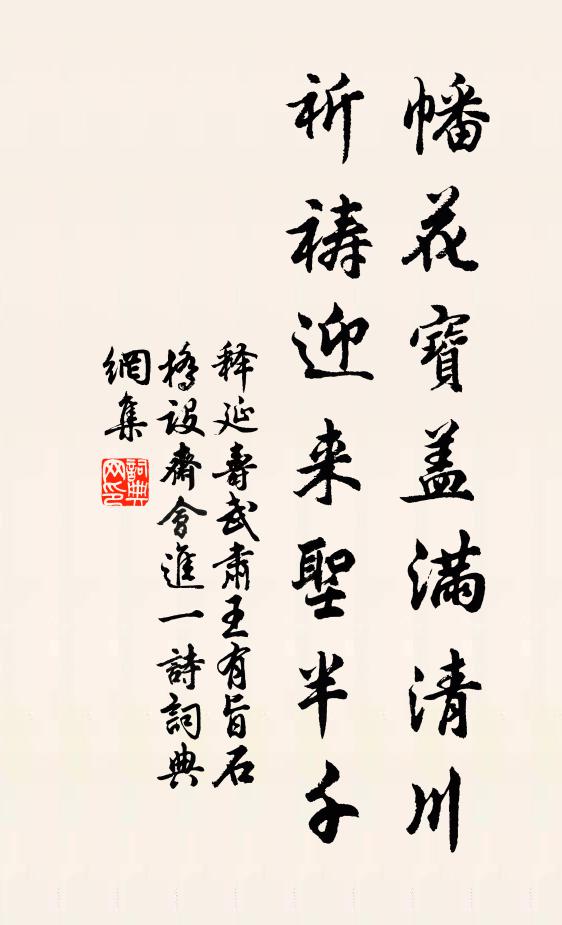 幡花寶盖滿清川
祈禱迎来聖半千
释延壽武肅王有旨石
橋設齋會進一詩詞典
網集
詞典
网印